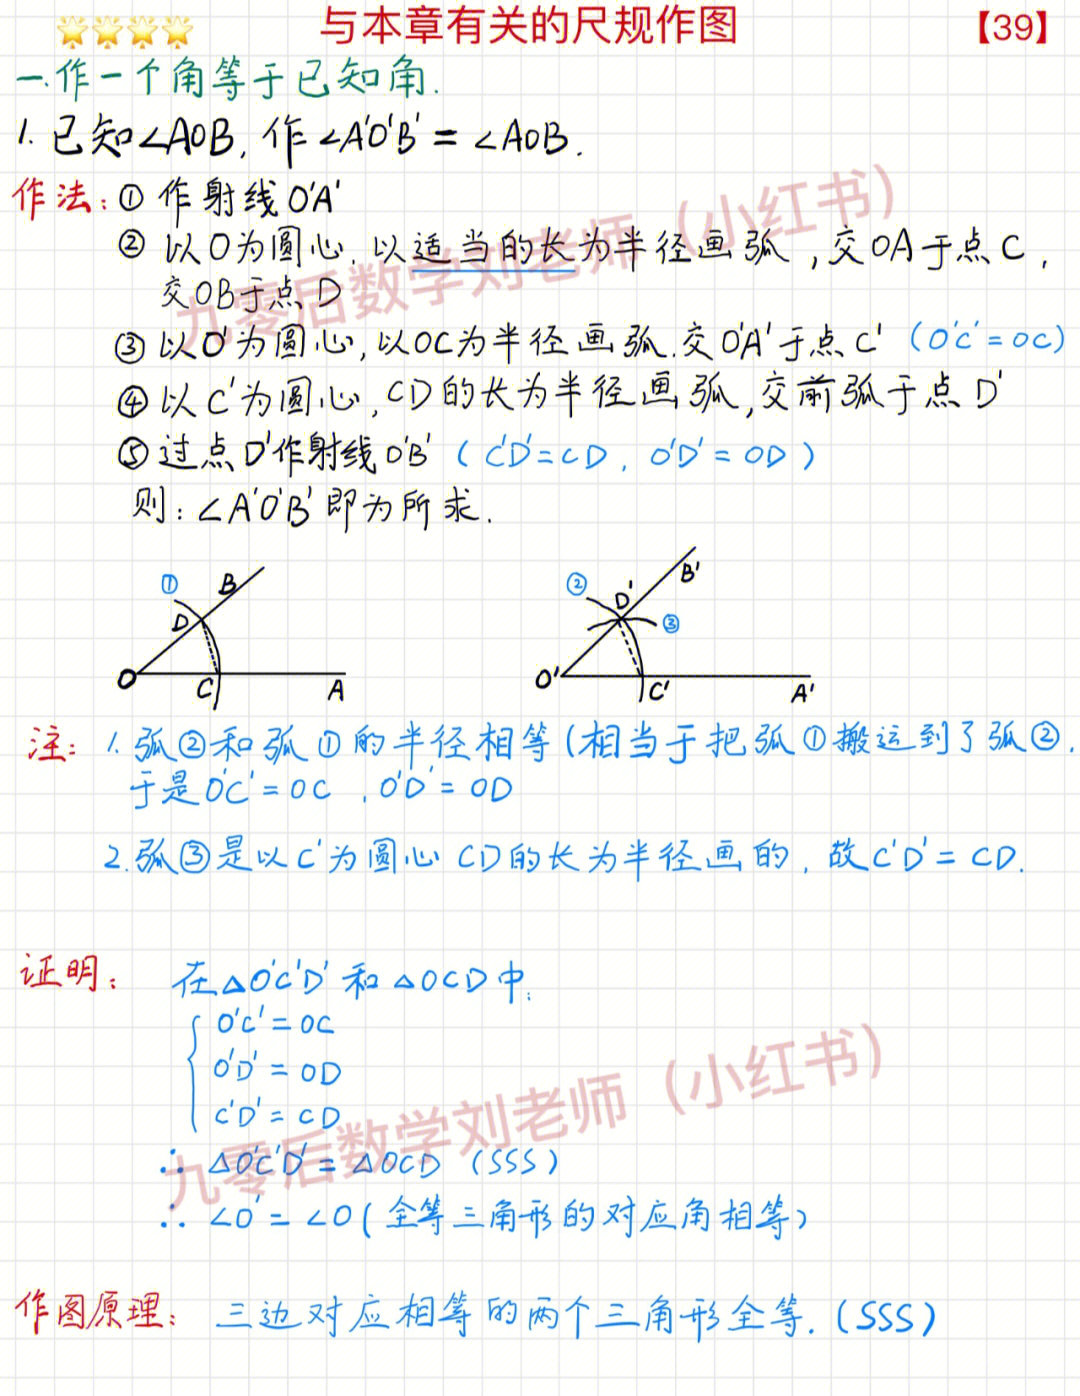 与本章有关的尺规作图
【39】
一.作一个角等于已知角.
1. 已知∠AOB, 作∠A'O'B' = ∠AOB.
作法: ① 作射线O'A'
② 以O为圆心, 以适当的长为半径画弧, 交OA于点C,
交OB于点D
③ 以O'为圆心, 以OC为半径画弧. 交O'A'于点C' (O'C'=OC)
④ 以C'为圆心, CD的长为半径画弧, 交前弧于点D'
⑤ 过点D'作射线O'B' (C'D'=CD, O'D'=OD)
则: ∠A'O'B'即为所求.
① B
D
O C A
② D' B'
③
O' C' A'
注: 1. 弧②和弧①的半径相等(相当于把弧①搬运到了弧②.
于是O'C'=OC, O'D'=OD
2. 弧③是以C'为圆心 CD的长为半径画的, 故C'D'=CD.
证明: 在△O'C'D'和△OCD中:
O'C'=OC
O'D'=OD
C'D'=CD
∴ △O'C'D'=△OCD (SSS)
∴ ∠O'=∠O(全等三角形的对应角相等)
作图原理: 三边对应相等的两个三角形全等. (SSS)
九零后数学刘老师（小红书）
九零后数学刘老师（小红书）